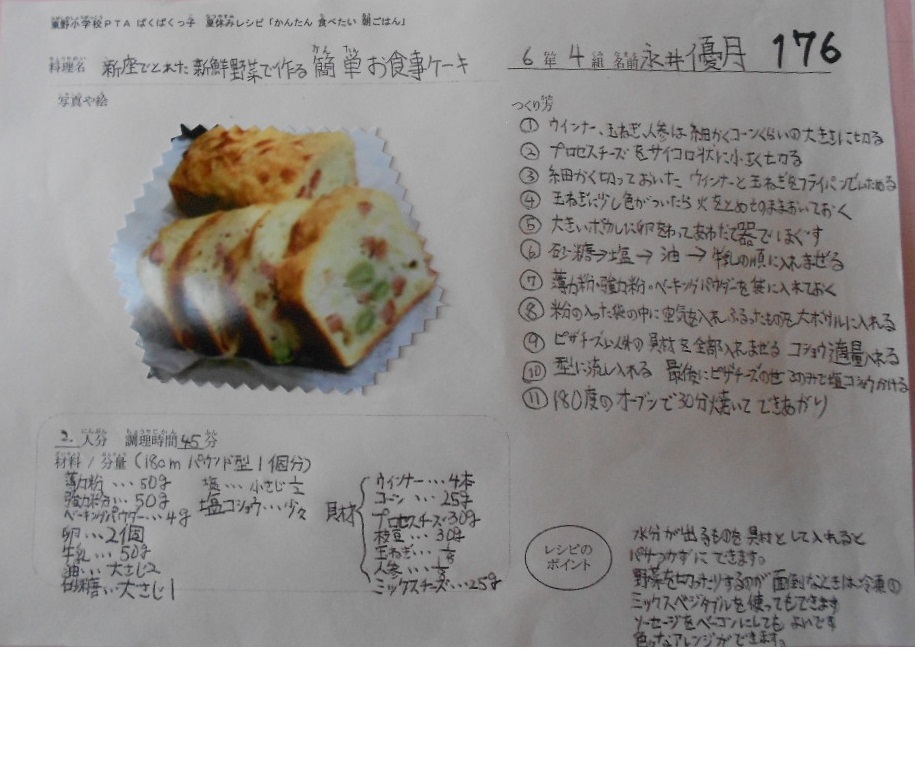 東野小学校PTA ぱくぱくっ子 夏休みレシピ「かんたん 食べたい 朝ごはん」
料理名 新座でとれた新鮮野菜で作る簡単お食事ケーキ
6年4組 名前 永井優月 176
写真や絵
つくり方
① ウインナー、玉ねぎ、人参は細かくコーンくらいの大きさに切る
② プロセスチーズをサイコロ状に小さく切る
③ 細かく切っておいたウィンナーと玉ねぎをフライパンでいためる
④ 玉ねぎに少し色がついたら火をとめそのままおいておく
⑤ 大きいボウルに卵をわってあわだて器でほぐす
⑥ 砂糖→塩→油→牛乳の順に入れまぜる
⑦ 薄力粉・強力粉・ベーキングパウダーを袋に入れておく
⑧ 粉の入った袋の中に空気を入れふるったものを大ボウルに入れる
⑨ ピザチーズ以外の具材を全部入れまぜる コショウ適量入れる
⑩ 型に流し入れる 最後にピザチーズのせ お好みで塩コショウかける
⑪ 180度のオーブンで30分焼いてできあがり
2人分 調理時間45分
材料/分量(18cm パウンド型1個分)
薄力粉…50g
強力粉…50g
ベーキングパウダー…4g
卵…2個
牛乳…50g
油…大さじ2
砂糖…大さじ1
塩…小さじ1/2
塩コショウ…少々
具材
ウィンナー…4本
コーン…25g
プロセスチーズ30g
枝豆…30g
玉ねぎ…1/8
人参…1/8
ミックスチーズ…25g
レシピの
ポイント
水分が出るものを具材として入れると
パサつかずにできます。
野菜を切ったりするのが面倒なときは冷凍の
ミックスベジタブルを使ってもできます
ソーセージをベーコンにしてもよいです
色々なアレンジができます。